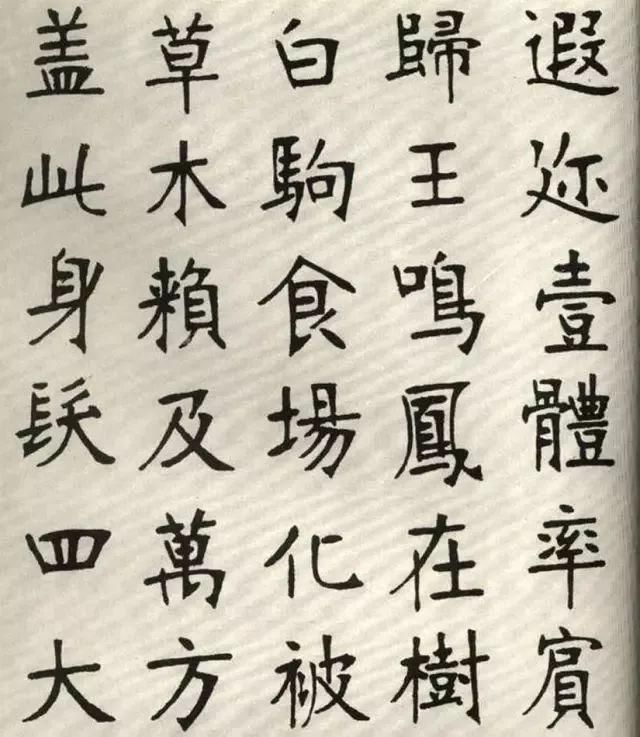 遐迩壹體率賔
歸王鳴鳳在樹
白駒食場化被
草木賴及萬方
盖此身髮四大